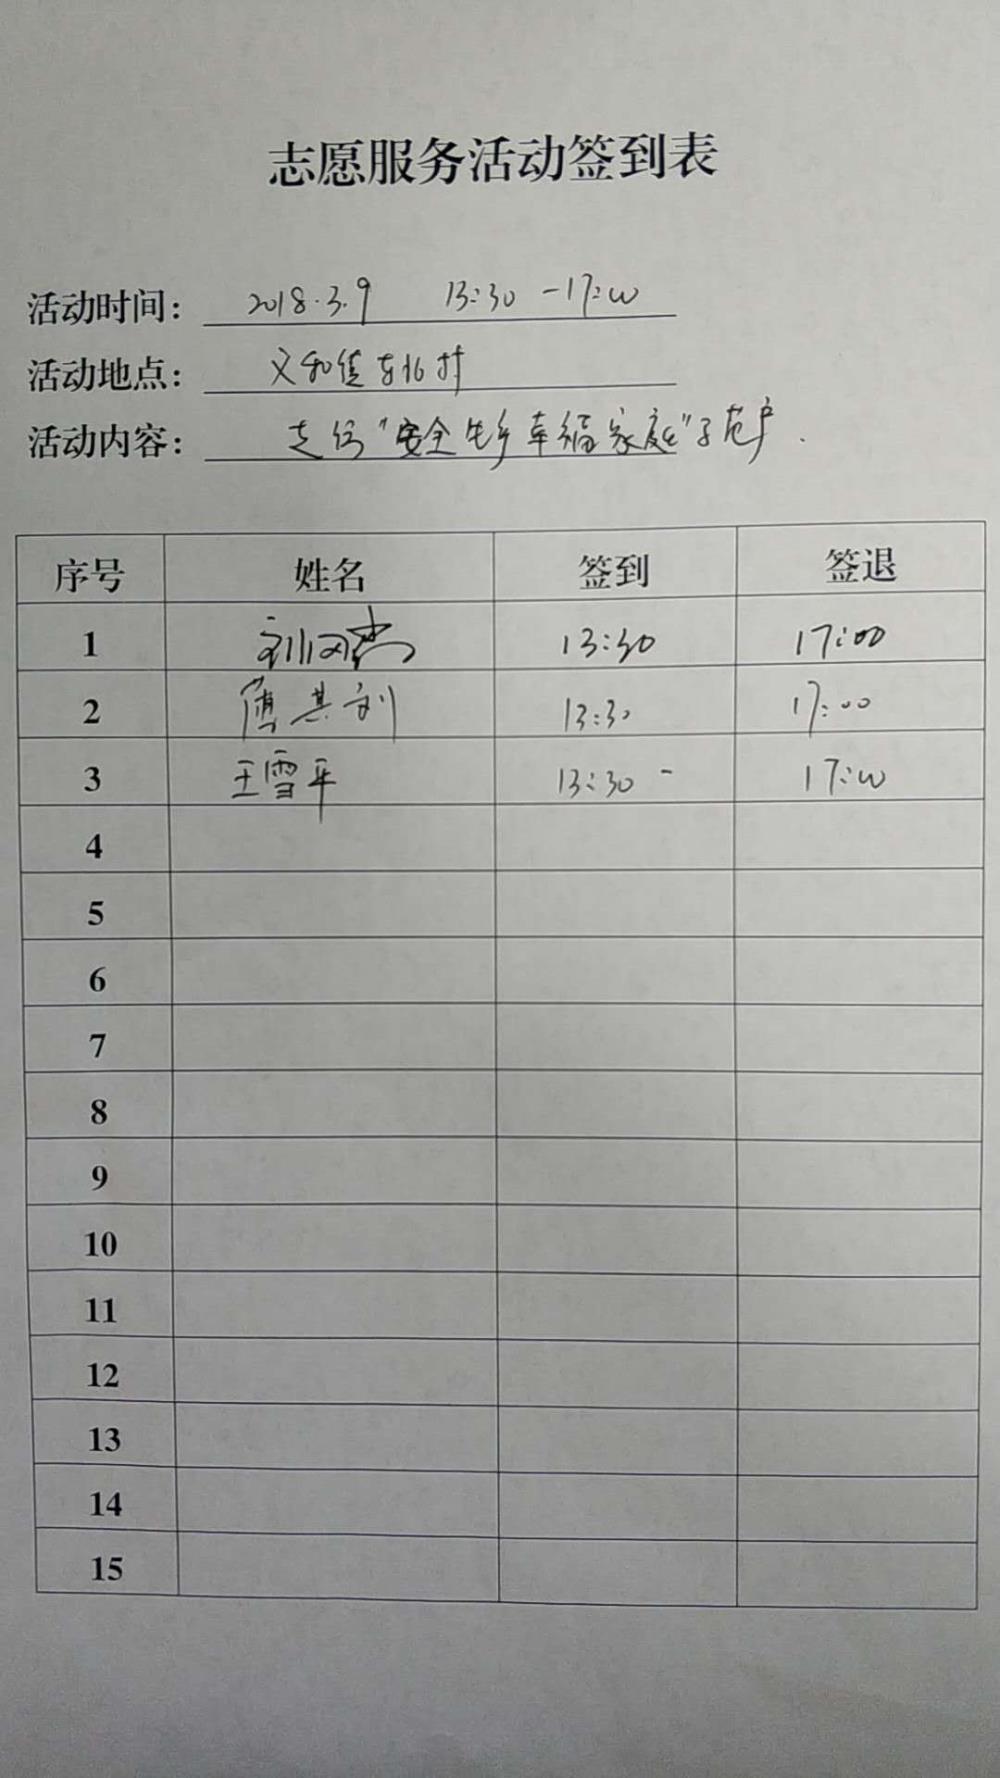 志愿服务活动签到表
活动时间： 2018.3.9 13:30 -17:00
活动地点： 义和镇 村
活动内容： 走 "安全 幸福家庭" 户.
序号 姓名 签到 签退
1 刘 13:30 17:00
2 傅其刘 13:30 17:00
3 王雪平 13:30 - 17:00
4
5
6
7
8
9
10
11
12
13
14
15